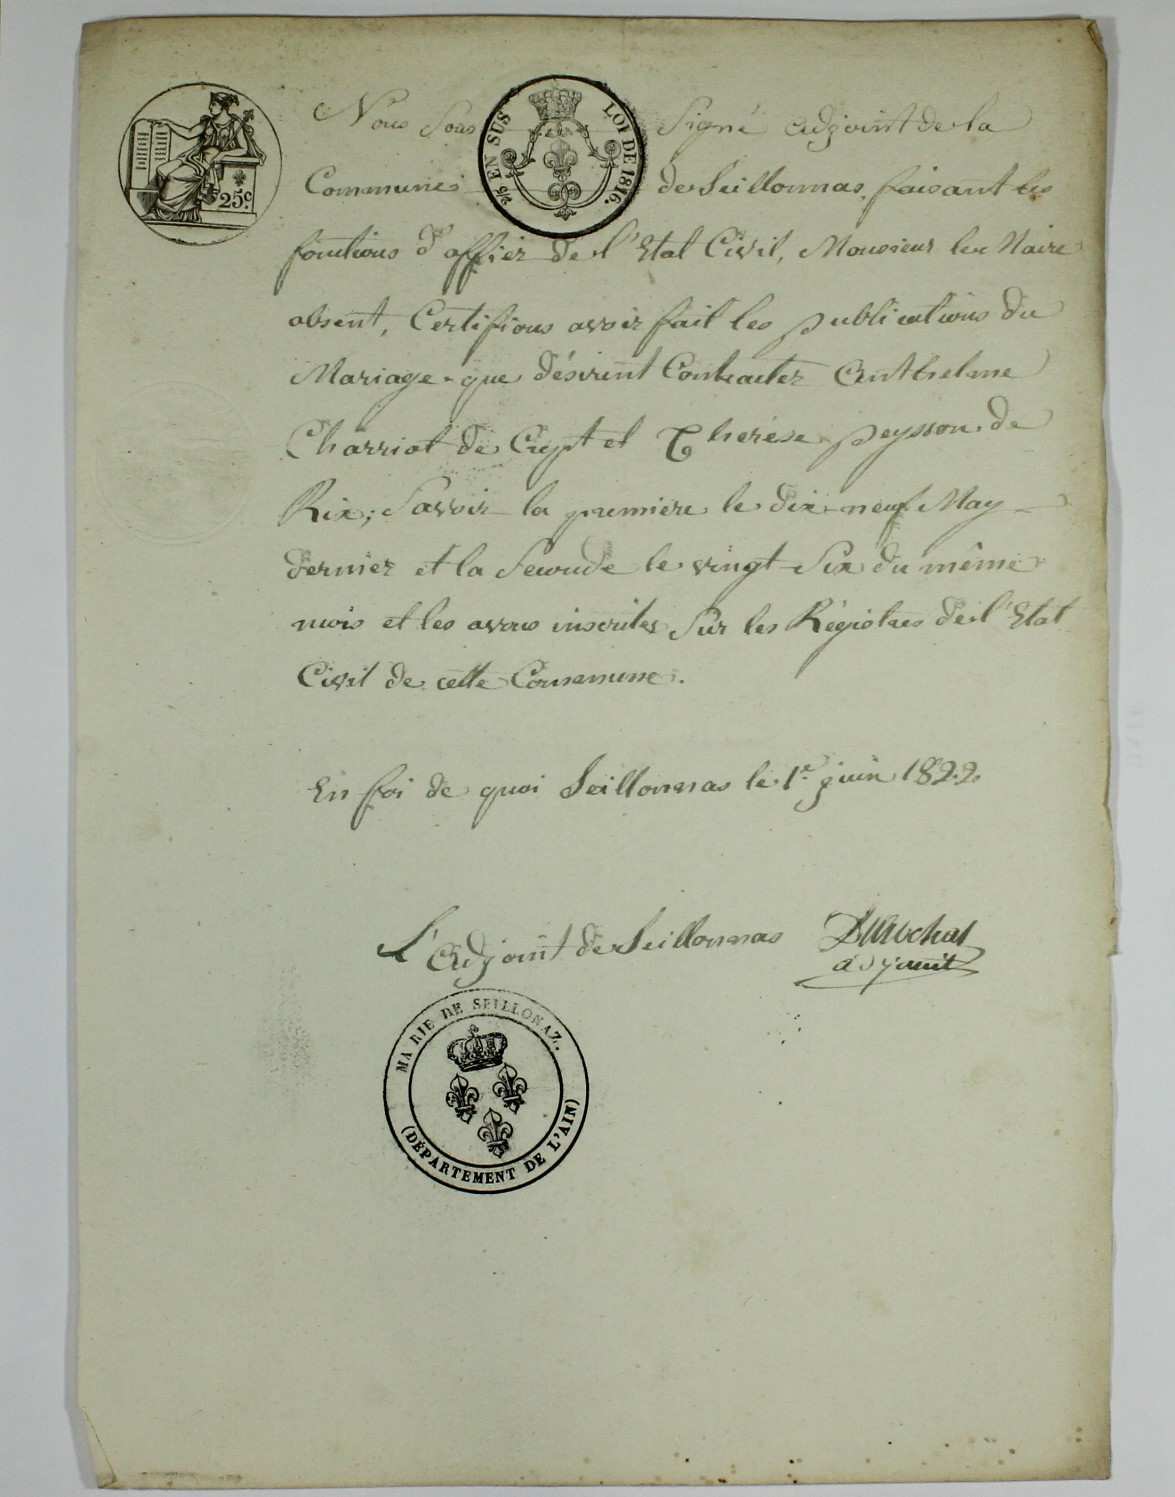 25c.
2/5 EN SUS LOI DE 1816.
Nous Sous Signé adjoint de la
Commune de Seillonnas, faisant les
fonctions d'officier de l'Etat Civil, Monsieur le Maire
absent, Certifions avoir fait les publications du
Mariage que désirent Contracter Anthelme
Charriot de Crept et Thérèse peysson de
Rix; Savoir la premiere le dix neuf May
dernier et la Seconde le vingt Six du même
mois et les avons inscrites Sur les Régistres de l'Etat
Civil de cette Commune.
En foi de quoi Seillonnas le 1er juin 1822
L'adjoint de Seillonnas
adjouint
MAIRIE DE SEILLONAZ.
(DÉPARTEMENT DE L'AIN)